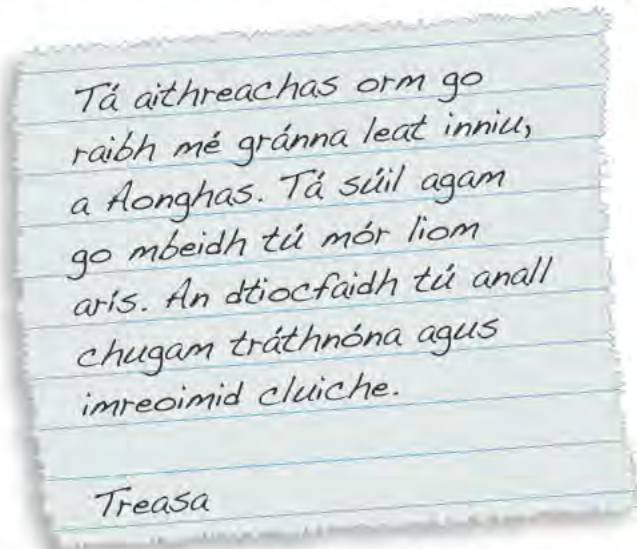 Tá aithreachas orm go
raibh mé gránna leat inniu,
a Aonghas. Tá súil agam
go mbeidh tú mór liom
arís. An dtiocfaidh tú anall
chugam tráthnóna agus
imreoimid cluiche.
Treasa